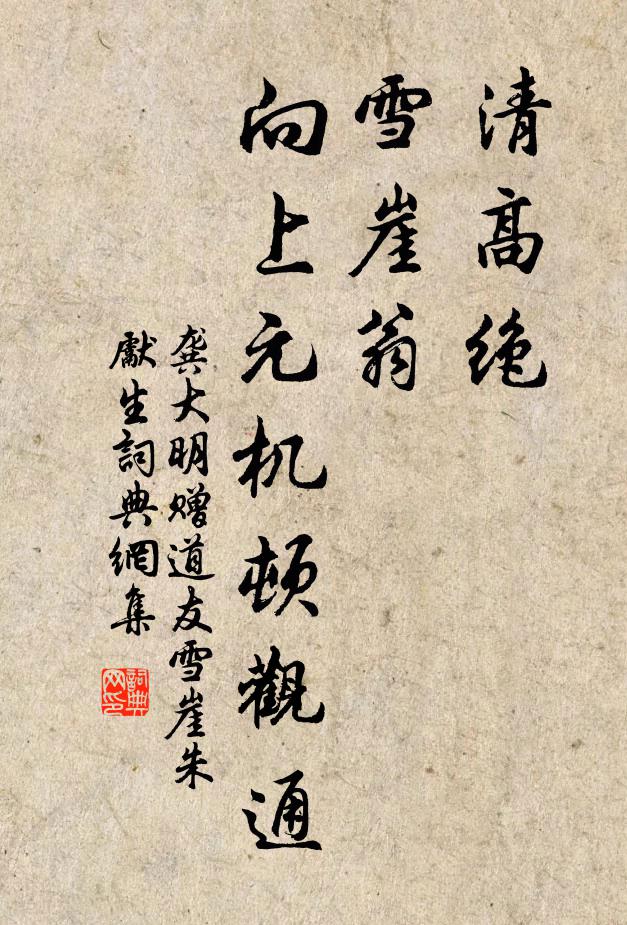 清高绝
雪崖翁
向上元机顿觀通
龚大明赠道友雪崖朱
獻生詞典網集
詞典网印